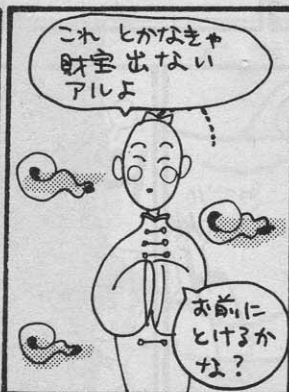 これ とかなきゃ
財宝出ない
アルよ
お前に
とけるか
な？